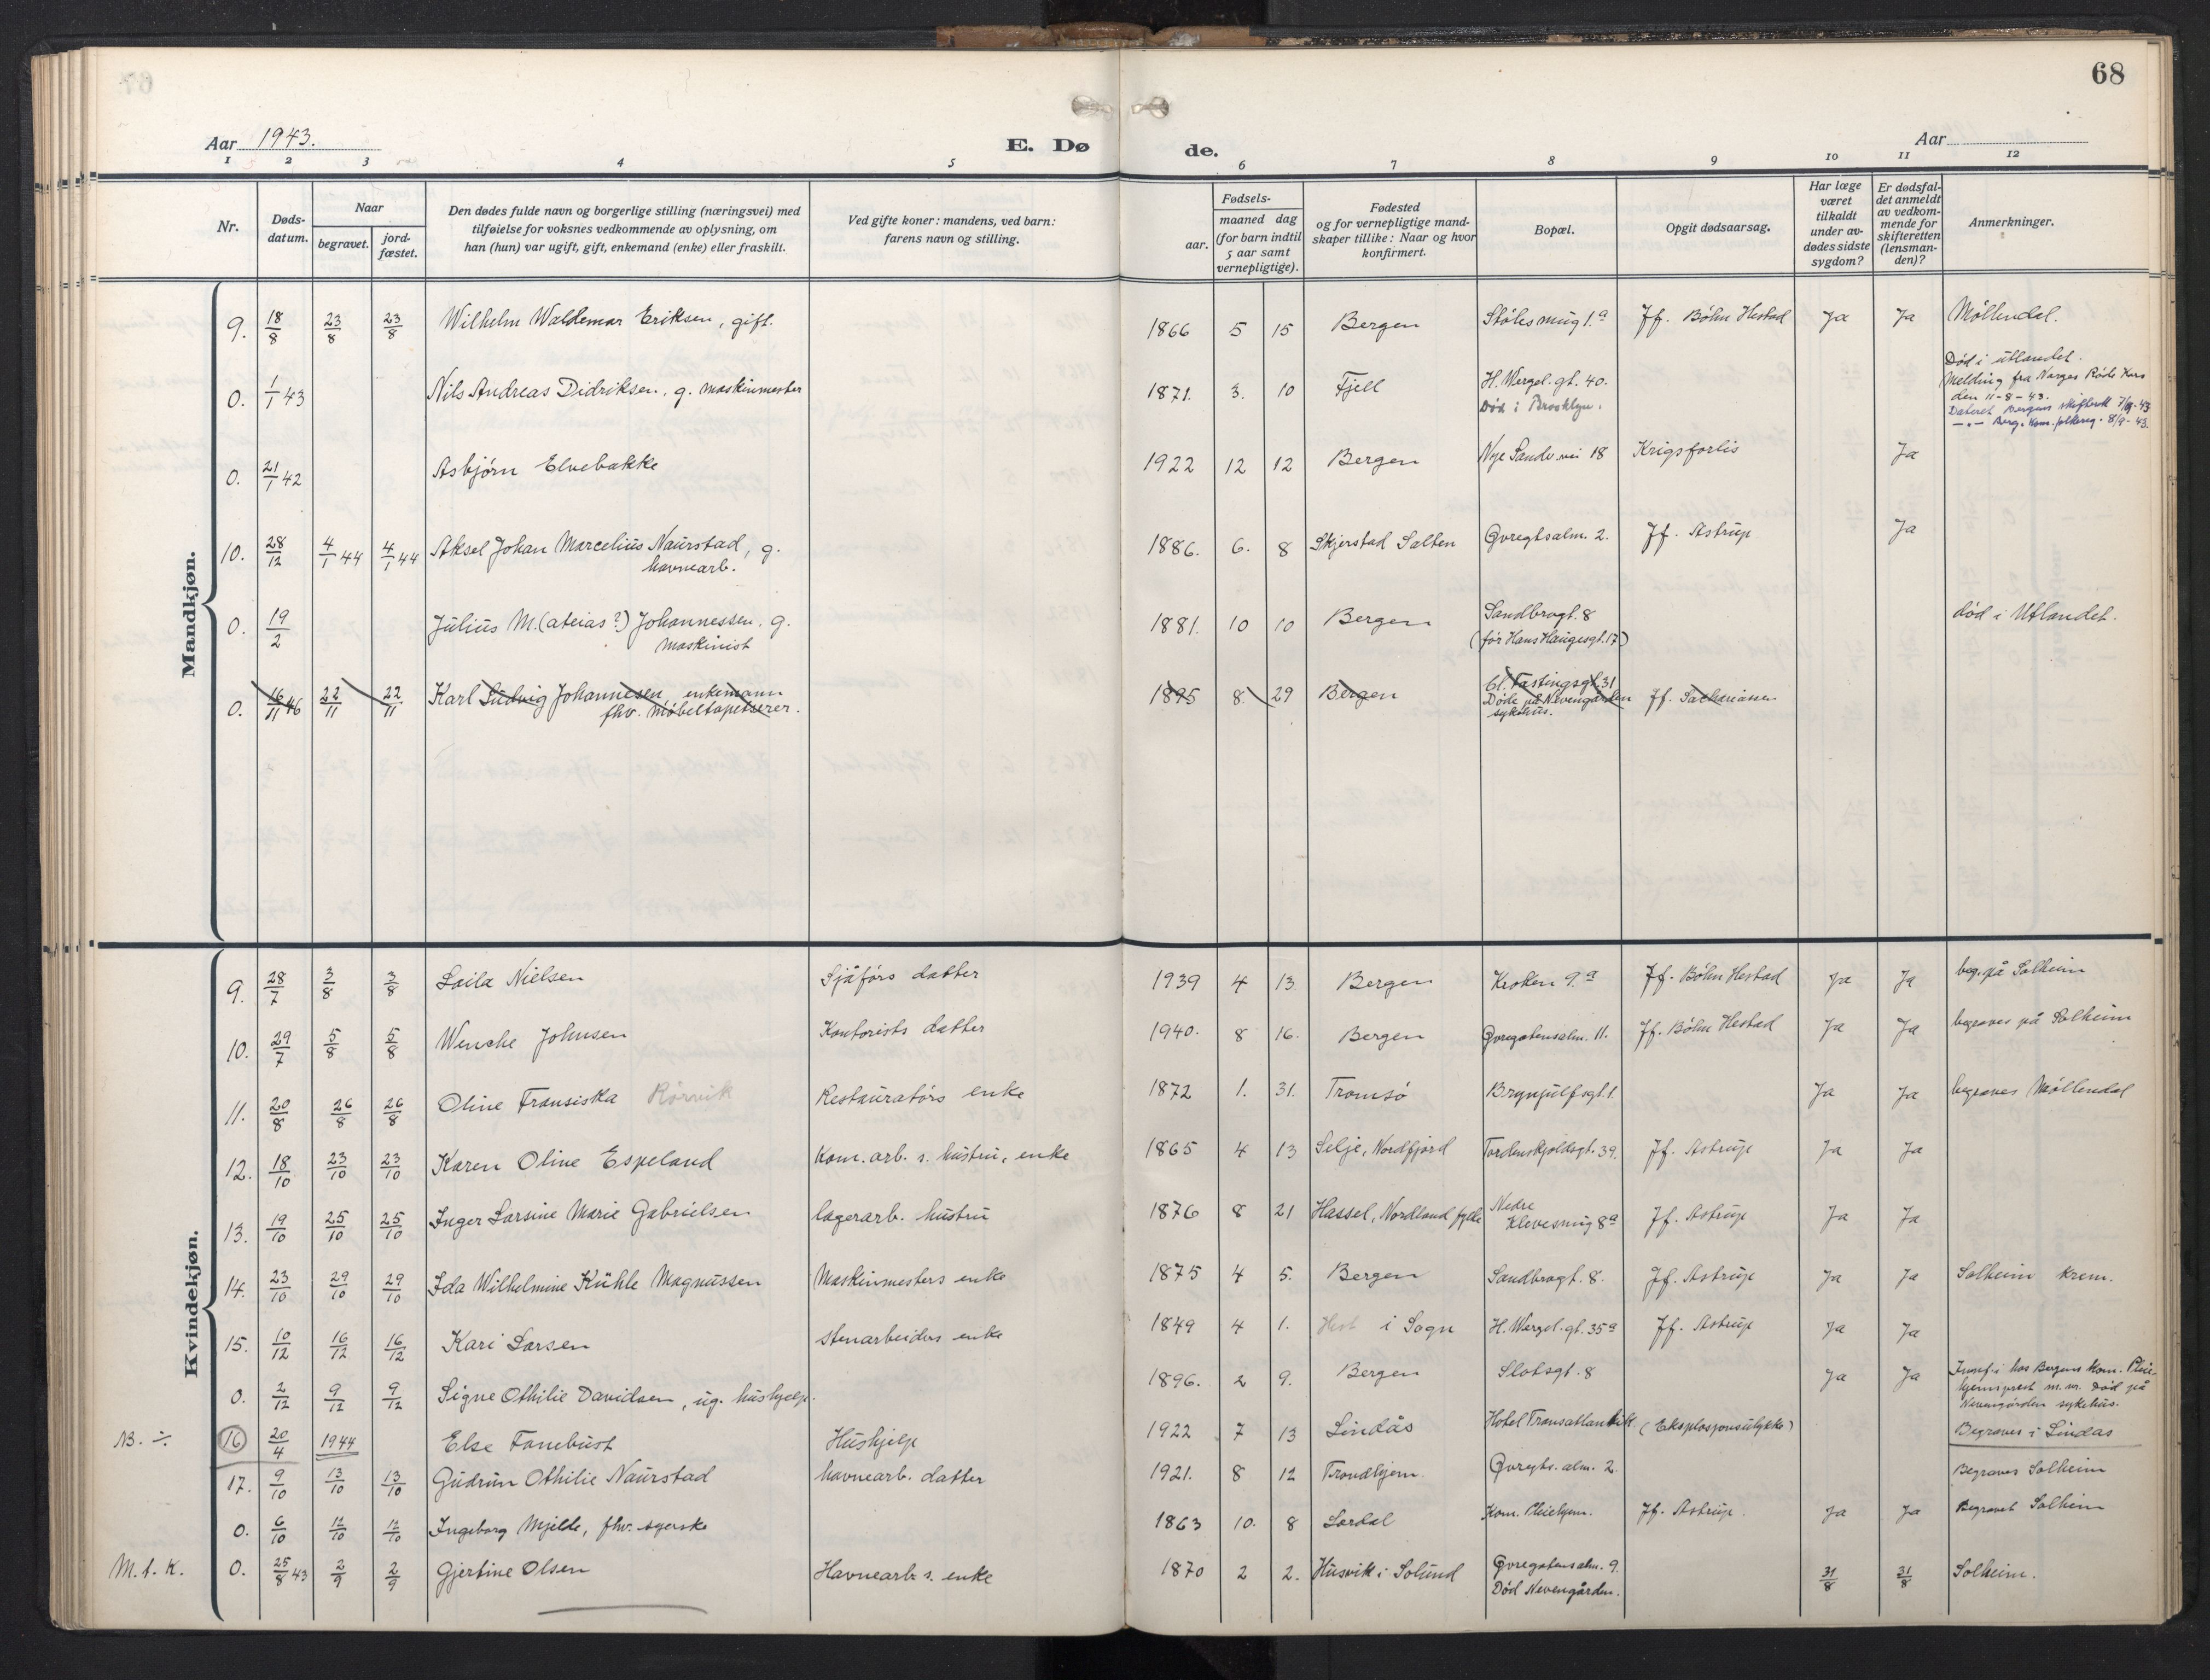 68
Aar 1943.
E. Dø
de.
Aar
1 2 3 4 5 6 7 8 9 10 11 12
Nr.
Døds-
datum.
Naar
begravet.
jord-
fæstet.
Den dødes fulde navn og borgerlige stilling (næringsvei) med
tilføielse for voksnes vedkommende av oplysning, om
han (hun) var ugift, gift, enkemand (enke) eller fraskilt.
Ved gifte koner: mandens, ved barn:
farens navn og stilling.
Fødsels-
aar.
maaned dag
(for barn indtil
5 aar samt
vernepligtige).
Fødested
og for vernepligtige mand-
skaper tillike: Naar og hvor
konfirmert.
Bopæl.
Opgit dødsaarsag.
Har læge
været
tilkaldt
under av-
dødes sidste
sygdom?
Er dødsfal-
det anmeldt
av vedkom-
mende for
skifteretten
(lensman-
den)?
Anmerkninger.
Mandkjøn.
9. 18/8 23/8 23/8 Wilhelm Waldemar Eriksen, gift. 1866 5 15 Bergen Stølesmug 1.a Jf. Bøhn Hestad Ja Ja Møllendal.
0. 1/1 43 Nils Andreas Didriksen, g. maskinmester 1871. 3. 10 Fjell H. Wergel. gt. 40.
Død i Brooklyn.
Død i utlandet.
Melding fra Norges Røde Kors
den 11-8-43.
0. 21/1 42 Asbjørn Elvebakke 1922 12 12 Bergen Nye Sandv.vei 18 Krigsforlis Ja
10. 28/12 4/1 44 4/1 44 Aksel Johan Marcelius Naurstad, g.
havnearb.
1886. 6. 8 Skjerstad Salten Øvregtsalm. 2. Jf. Astrup Ja
0. 19/2 Julius M. (ateias?) Johannessen, g.
maskinist
1881. 10 10 Bergen Sandbrogt. 8
(før Hans Haugesgt. 17)
død i Utlandet.
0. 16/11 46 22/11 22/11 Karl Ludvig Johannesen, enkemann
fhv. møbeltapetserer.
1895 8 29 Bergen Cl. Fastingsgt. 31
Døde på Nevengården
sykehus.
Jf. Sachariassen
Kvindekjøn.
9. 28/7 3/8 3/8 Laila Nielsen Sjåførs datter 1939 4 13 Bergen Kroken 9.a Jf. Bøhn Hestad Ja Ja beg. på Solheim
10. 29/7 5/8 5/8 Wenche Johnsen Kontorists datter 1940. 8 16. Bergen Øvregatensalm. 11. Jf. Bøhn Hestad Ja Ja begraves på Solheim
11. 20/8 26/8 26/8 Oline Fransiska Rørvik Restauratørs enke 1872 1. 31. Tromsø Brynjulfsgt. 1. Ja Ja begraves Møllendal
12. 18/10 23/10 23/10 Karen Oline Espeland Kom. arb. s. hustru, enke 1865 4 13 Selje, Nordfjord Tordenskjoldsgt. 39. Jf. Astrup Ja Ja
13. 19/10 25/10 25/10 Inger Larsine Marie Gabrielsen lagerarb. hustru 1876 8 21 Hassel, Nordland fylke Nedre
Klevesmug 8a Jf. Astrup Ja Ja
14. 23/10 29/10 29/10 Ida Wilhelmine Kühle Magnussen Maskinmesters enke 1875 4 5. Bergen Sandbrogt. 8. Jf. Astrup Ja Ja Solheim krem.
15. 10/12 16/12 16/12 Kari Larsen Stenarbeiders enke 1849 4 1. i Sogn H. Wergel. gt. 35a Jf. Astrup Ja Ja
0. 2/12 9/12 9/12 Signe Othilie Davidsen, ug. hushjelp. 1896. 2 9. Bergen Slotsgt. 8 Ja Ja hos Bergens Kom. Pleie-
hjemsprest m.m. Død på
Nevengården sykehus.
NB. ÷ 16 20/4 1944 Else Fonebust Hushjelp 1922 7 13 Lindås Hotel Transatlantik (Eksplosjonsulykke) Begraves i Lindås
17. 9/10 13/10 13/10 Gudrun Othilie Naurstad havnearb. datter 1921. 8 12 Trondhjem. Øvregts. alm. 2. Begraves Solheim
0. 6/10 12/10 12/10 Ingeborg Mjelde, fhv. syerske 1863 10. 8 Lærdal Kom. Pleiehjem. Jf. Astrup. Ja Ja Begravet Solheim
M.t.K. 0. 25/8 43 2/9 2/9 Gjertine Olsen Havnearb. s. enke 1870 2 2. Husvik i Solund Øvregatensalm. 9.
Død Nevengården.
31/8 31/8 Solheim.